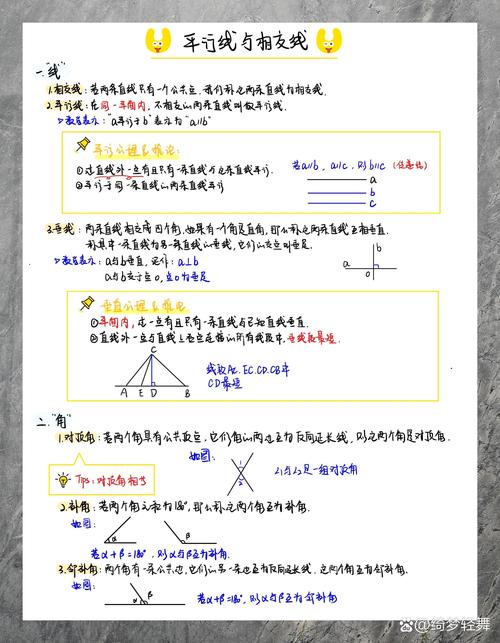 平行线与相交线
一."线"
1.相交线:若两条直线只有一个公共点,我们称这两条直线为相交线.
2.平行线:在同一平面内,不相交的两条直线叫做平行线.
▷数学表示:"a平行于b"表示为"a∥b"
平行公理及推论:
①过直线外一点有且只有一条直线与这条直线平行.
②平行于同一条直线的两条直线平行
若a∥b, a∥c, 则b∥c (传递性)
a
b
c
3.垂线:两条直线相交成四个角,如果有一个角是直角,那么称这两条直线互相垂直.
称其中一条直线为另一条直线的垂线,它们的交点叫垂足.
▷数学表示:a与b垂直,记作:a⊥b
a与b交于点O,点O为垂足
b
a
o
垂直公理及推论
①平面内,过一点有且只有一条直线与已知直线垂直.
②直线外一点与直线上各点连接的所有线段中,垂线段最短.
C
A E D B
线段AC.EC.CD.CB中
CD最短
二."角"
1.对顶角:若两个角具有公共顶点,它们角的两边互为反向延长线,则这两个角是对顶角.
如图:
1
2
∠1与∠2是一组对顶角
Tips:对顶角相等
2.补角:若两个角之和为180°,那么称这两个角互为补角.
如图:
α
β
若α+β=180°,则α与β互为补角.
3.邻补角:两个角有一条公共边,它们的另一条边互为反向延长线,这两个角互为邻补角.
如图:
α
β
若α+β=180°,则α与β互为邻补角
@绮梦轻舞